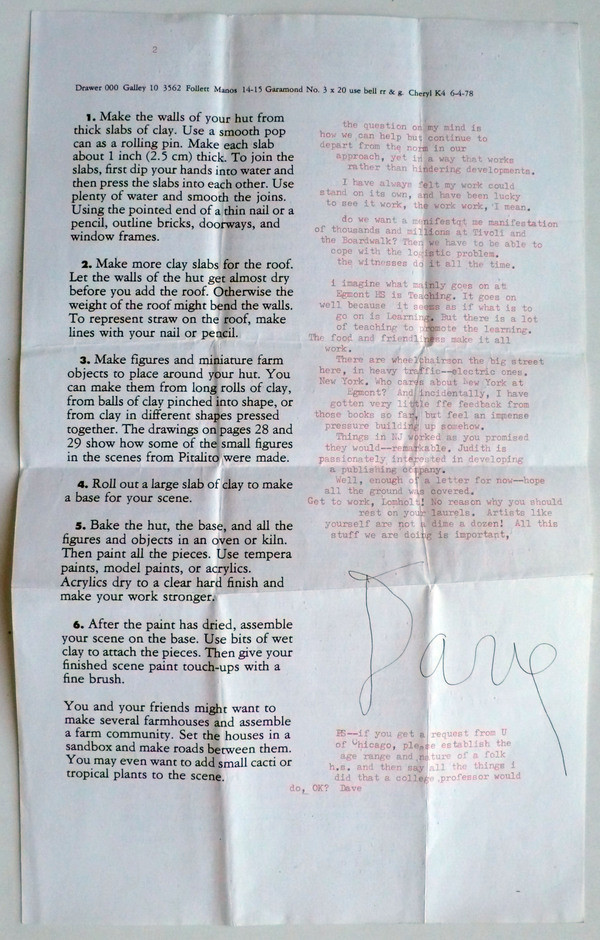 2
Drawer 000 Galley 10 3562 Follett Manos 14-15 Garamond No. 3 x 20 use bell rr & g. Cheryl K4 6-4-78
1. Make the walls of your hut from
thick slabs of clay. Use a smooth pop
can as a rolling pin. Make each slab
about 1 inch (2.5 cm) thick. To join the
slabs, first dip your hands into water and
then press the slabs into each other. Use
plenty of water and smooth the joins.
Using the pointed end of a thin nail or a
pencil, outline bricks, doorways, and
window frames.
2. Make more clay slabs for the roof.
Let the walls of the hut get almost dry
before you add the roof. Otherwise the
weight of the roof might bend the walls.
To represent straw on the roof, make
lines with your nail or pencil.
3. Make figures and miniature farm
objects to place around your hut. You
can make them from long rolls of clay,
from balls of clay pinched into shape, or
from clay in different shapes pressed
together. The drawings on pages 28 and
29 show how some of the small figures
in the scenes from Pitalito were made.
4. Roll out a large slab of clay to make
a base for your scene.
5. Bake the hut, the base, and all the
figures and objects in an oven or kiln.
Then paint all the pieces. Use tempera
paints, model paints, or acrylics.
Acrylics dry to a clear hard finish and
make your work stronger.
6. After the paint has dried, assemble
your scene on the base. Use bits of wet
clay to attach the pieces. Then give your
finished scene paint touch-ups with a
fine brush.
You and your friends might want to
make several farmhouses and assemble
a farm community. Set the houses in a
sandbox and make roads between them.
You may even want to add small cacti or
tropical plants to the scene.
the question on my mind is
how we can help but continue to
depart from the norm in our
approach, yet in a way that works
rather than hindering developments.
I have always felt my work could
stand on its own, and have been lucky
to see it work, the work work, I mean.
do we want a me manifestation
of thousands and millions at Tivoli and
the Boardwalk? Then we have to be able to
cope with the logistic problem.
the witnesses do it all the time.
i imagine what mainly goes on at
Egmont HS is Teaching. It goes on
well because it seems as if what is to
go on is Learning. But there is a lot
of teaching to promote the learning.
The food and friendliness make it all
work.
There are wheelchairson the big street
here, in heavy traffic--electric ones.
New York. Who cares about New York at
Egmont? And incidentally, I have
gotten very little ffe feedback from
those books so far, but feel an immense
pressure building up somehow.
Things in NJ worked as you promised
they would--remarkable. Judith is
passionately interested in developing
a publishing company.
Well, enough of a letter for now--hope
all the ground was covered.
Get to work, Lomholt! No reason why you should
rest on your laurels. Artists like
yourself are not a dime a dozen! All this
stuff we are doing is important,
Dave
PS--if you get a request from U
of Chicago, please establish the
age range and nature of a folk
h.s. and then say all the things i
did that a college professor would
do, OK? Dave